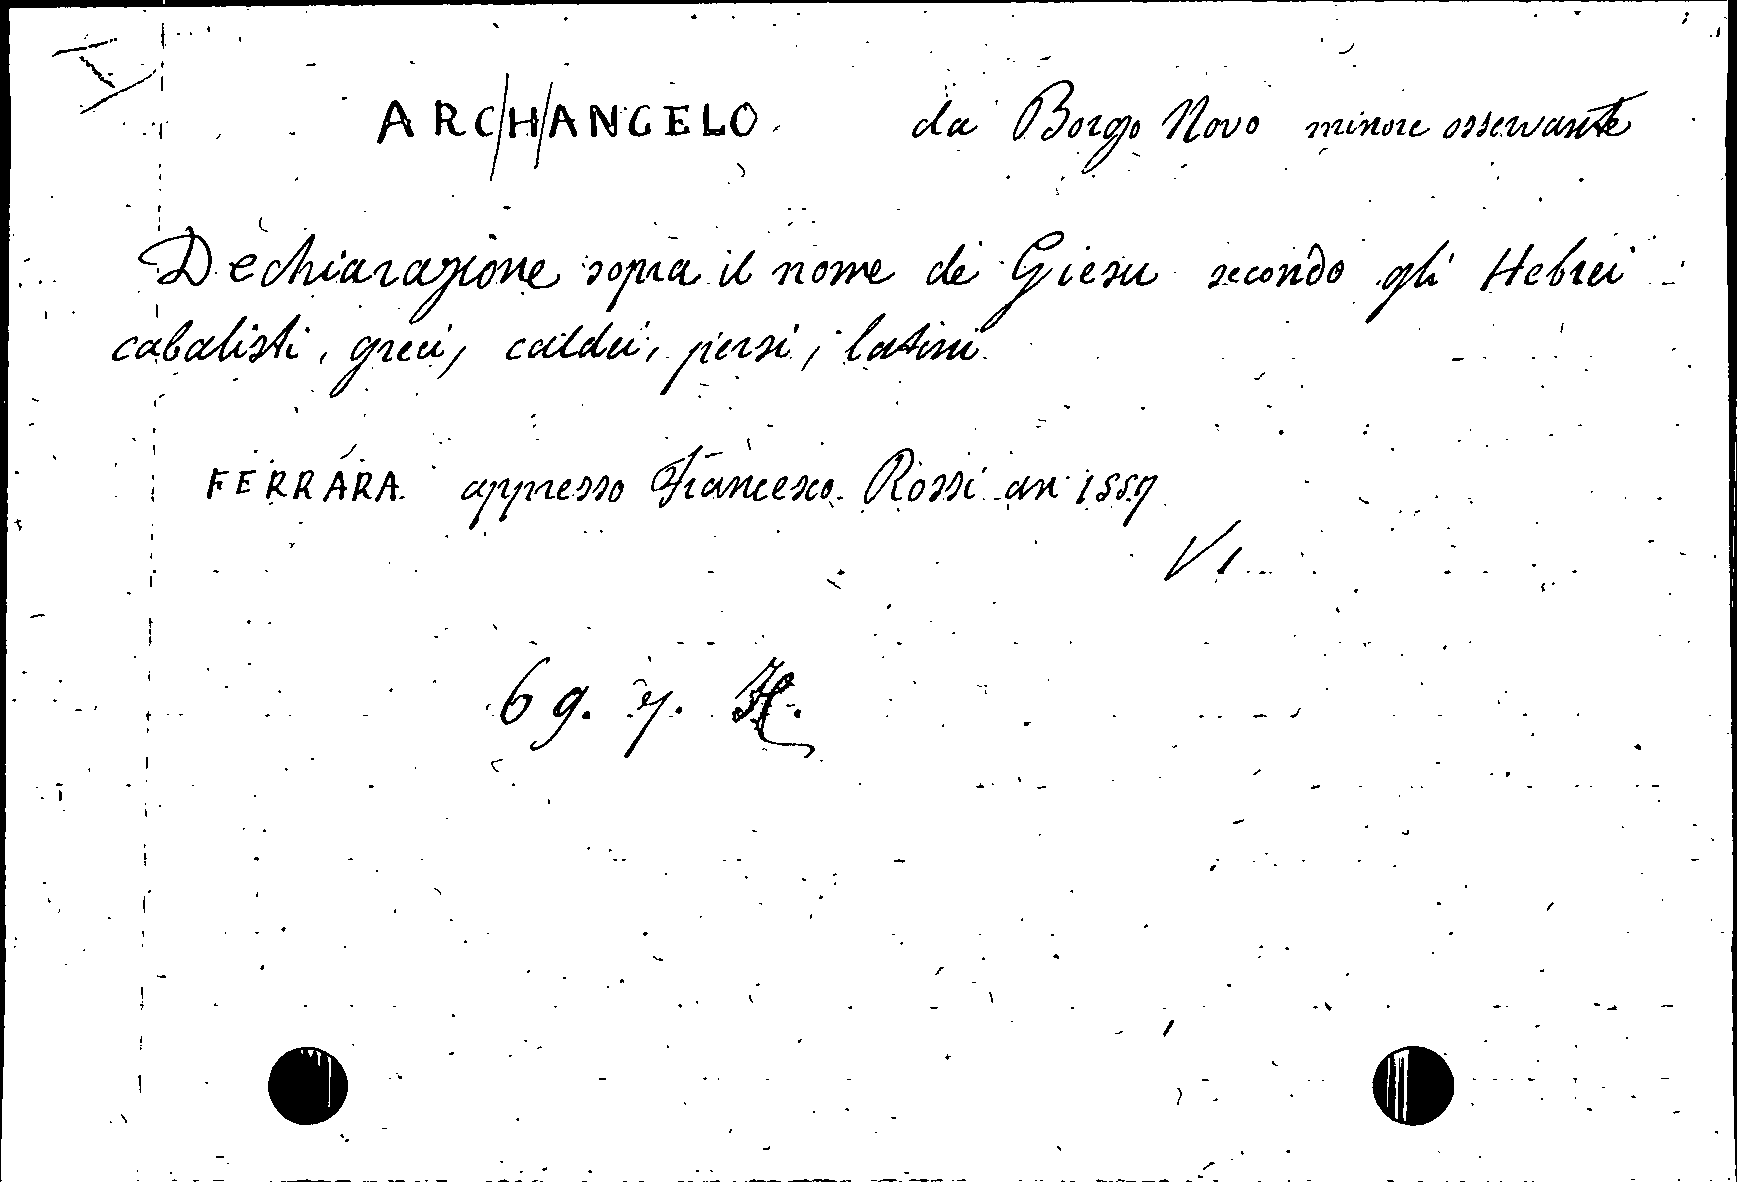 ARC/H/ANGELO da Borgo Novo minore osservante
Dechiarazione sopra il nome di Giesu secondo gli Hebrei
cabalisti, greci, caldei, persi, latini
FERRARA appresso Francesco Rossi an 1557
VI
69. 7. H.